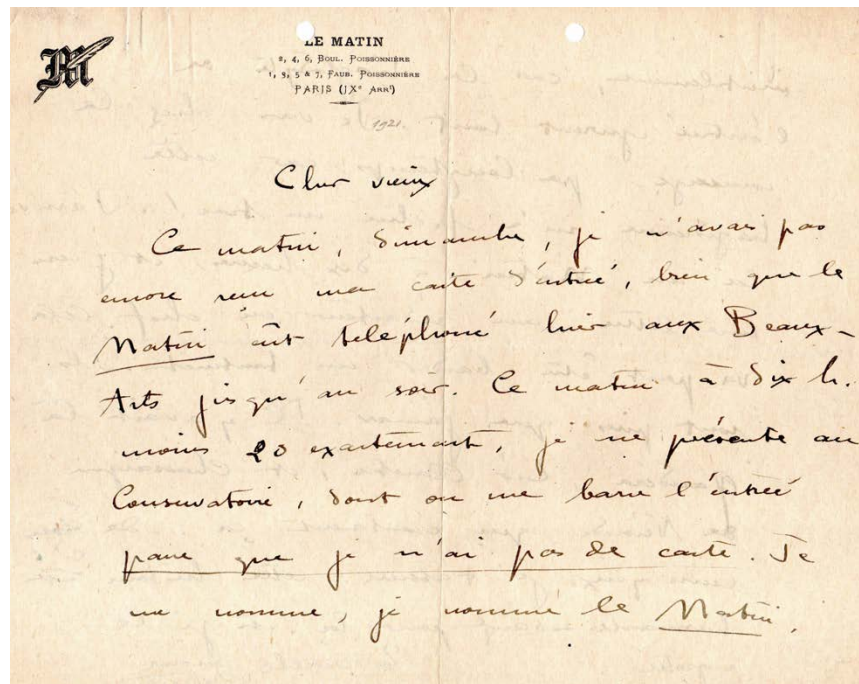 M
LE MATIN
2, 4, 6, BOUL. POISSONNIÈRE
1, 3, 5 & 7, FAUB. POISSONNIÈRE
PARIS (IXe ARRt)
1921.
Cher vieux
Ce matin, dimanche, je n'avais pas
encore reçu ma carte d'entrée, bien que le
Matin eût téléphoné hier aux Beaux-
Arts jusqu'au soir. Ce matin à dix h.
moins 20 exactement, je me présente au
Conservatoire, dont on me barre l'entrée
parce que je n'ai pas de carte. Je
me nomme, je nomme le Matin,